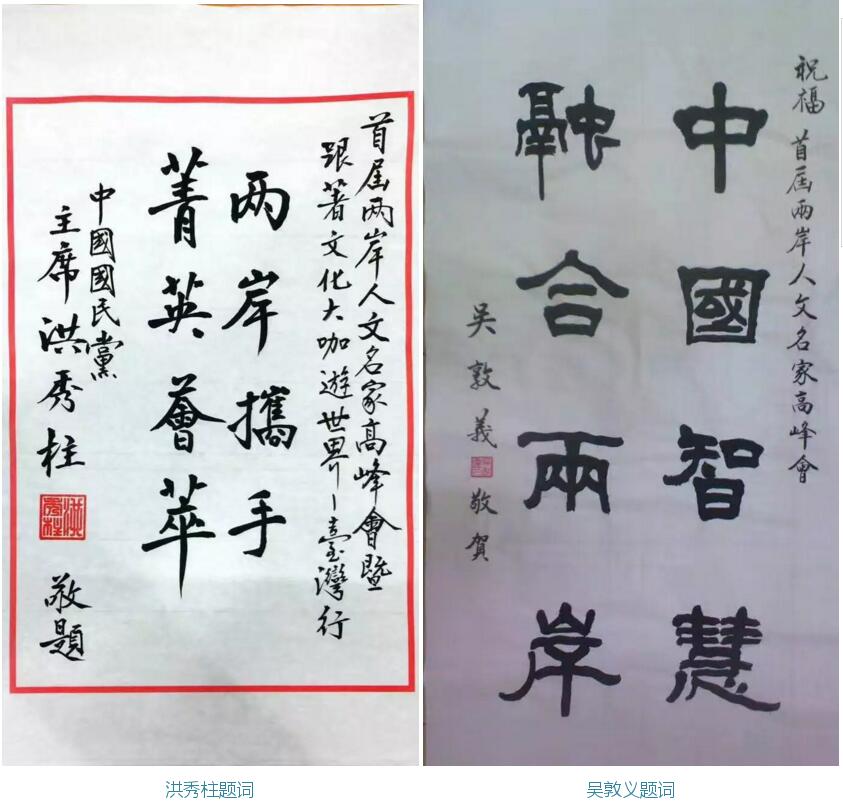 首屆两岸人文名家高峰會暨
跟著文化大咖遊世界－臺灣行
两岸攜手
菁英薈萃
中國國民黨
主席洪秀柱 敬題
洪秀柱题词
祝福 首屆兩岸人文名家高峰會
中國智慧
融合兩岸
吴敦義 敬賀
吴敦义题词